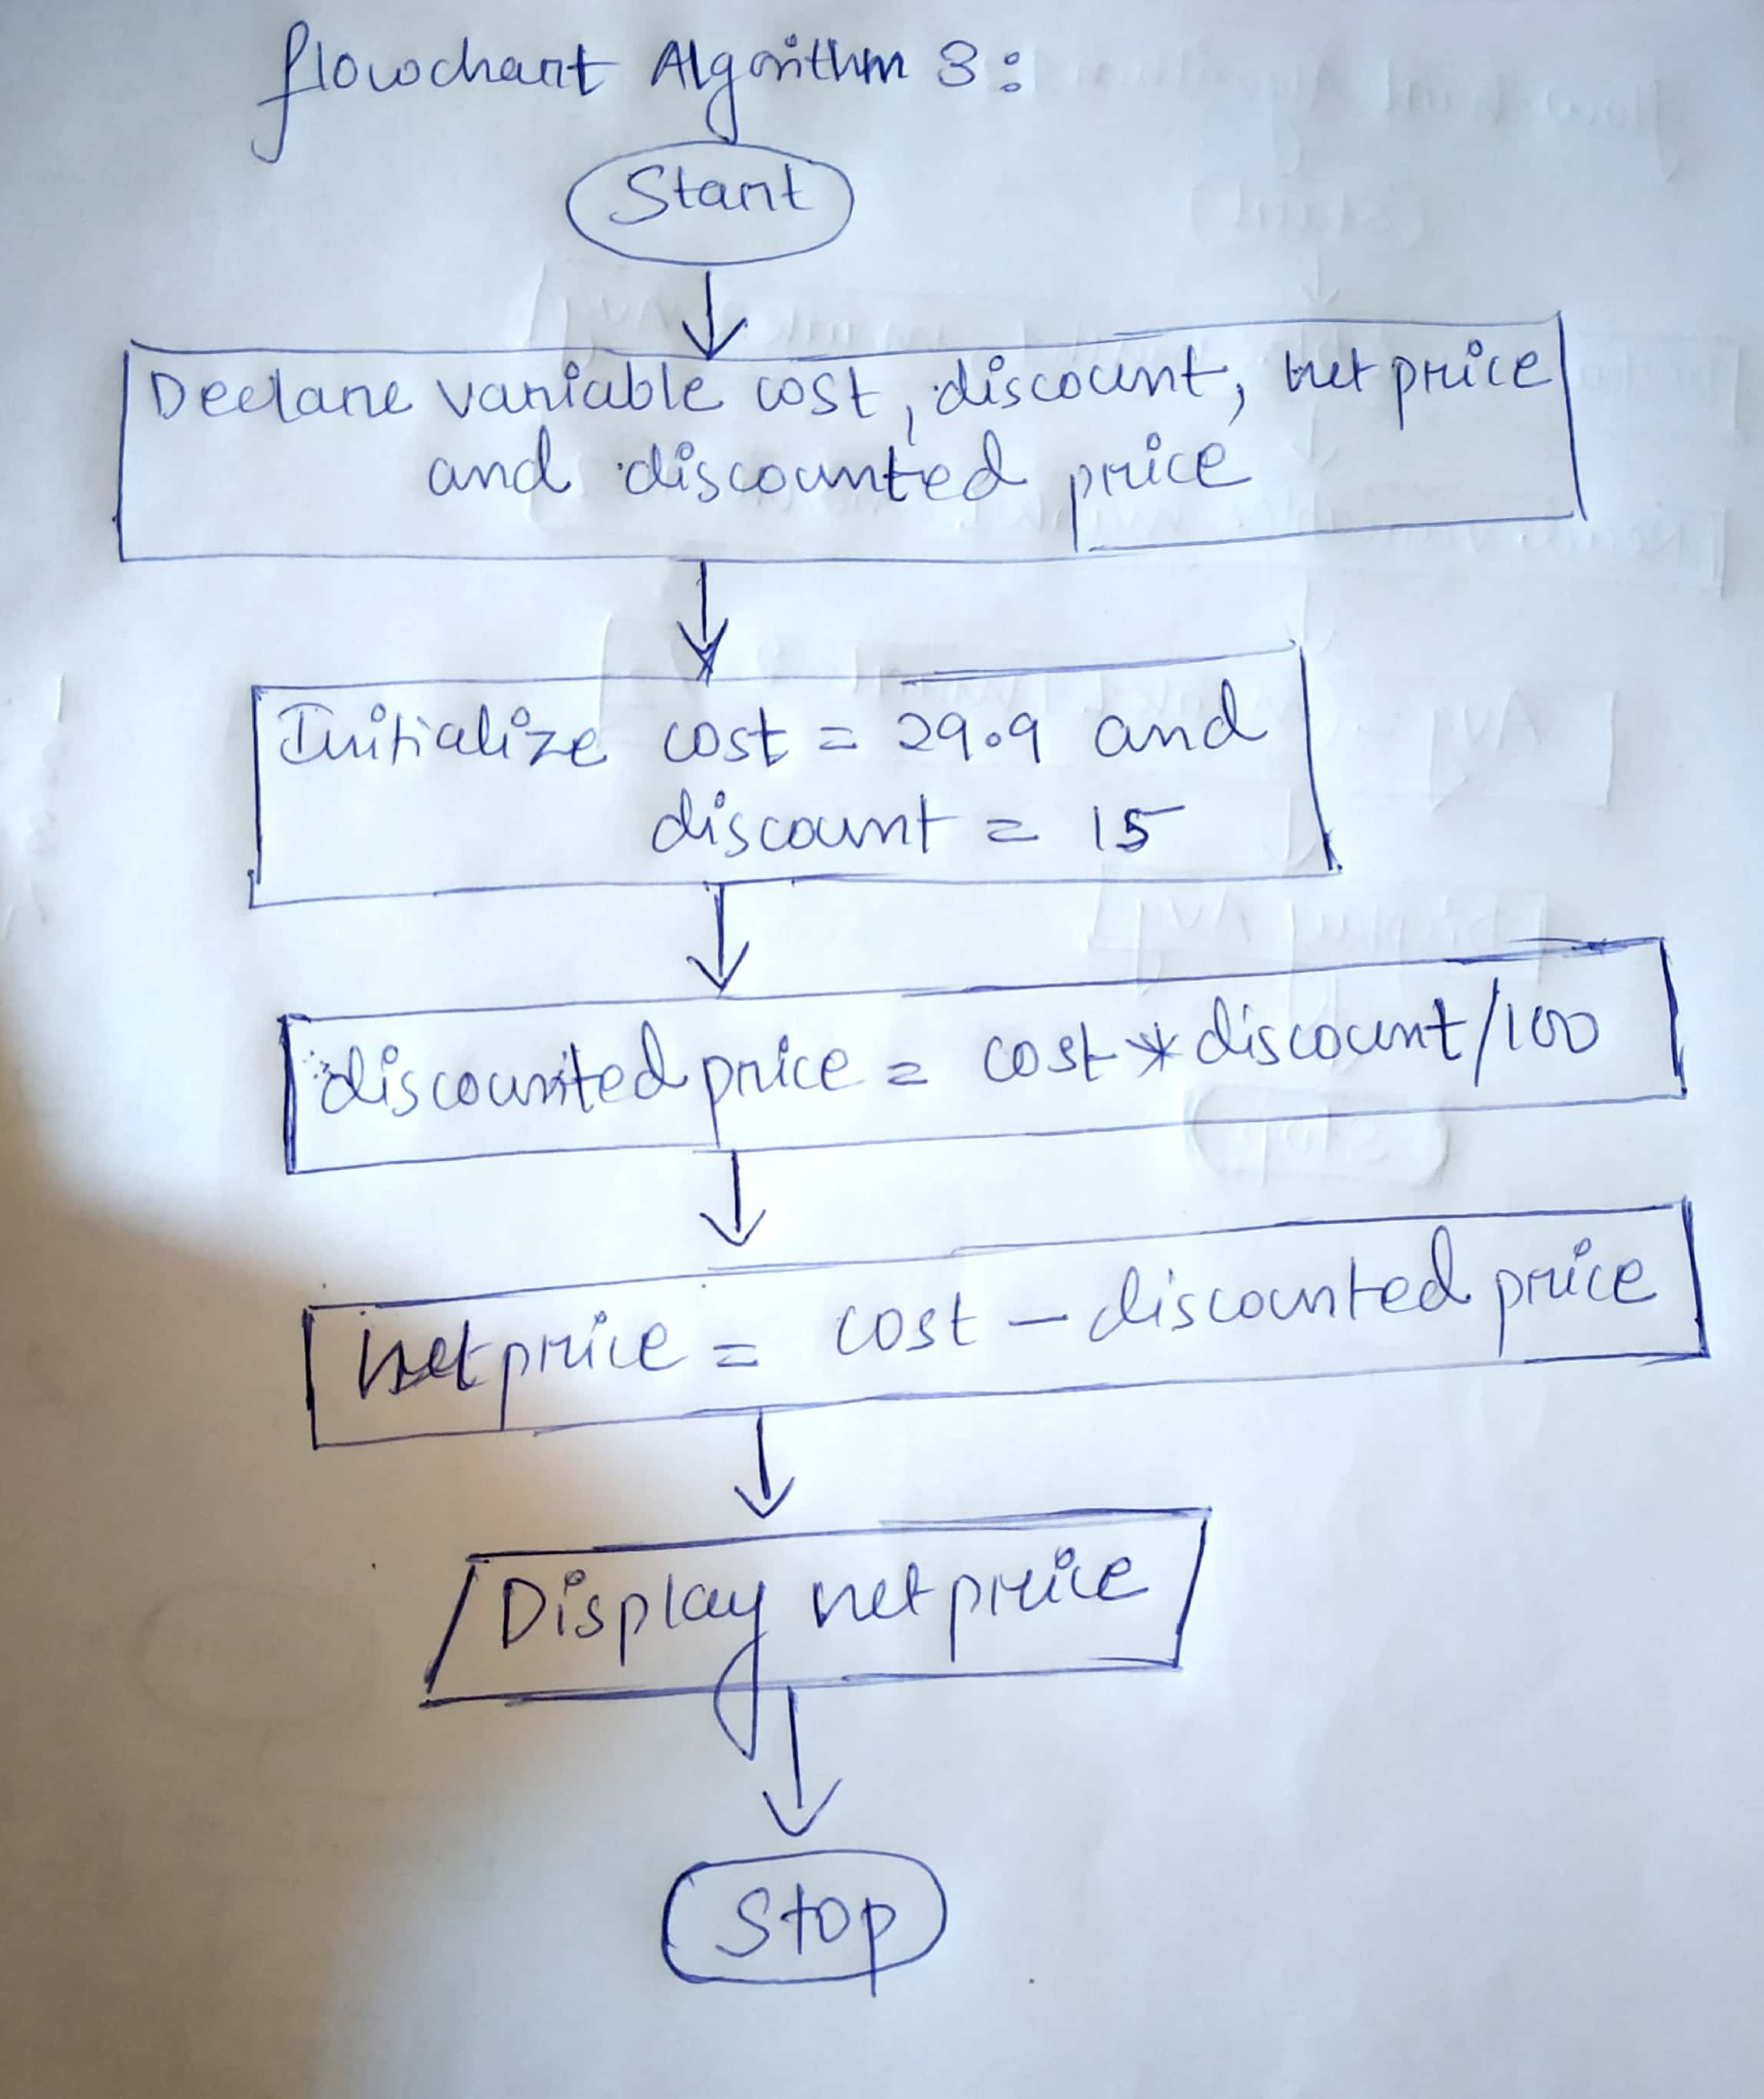 flowchart Algorithm 3:
Start
Declare variable cost, discount, netprice
and discounted price
Initialize cost = 29.9 and
discount = 15
discounted price = cost * discount/100
netprice = cost - discounted price
Display netprice
Stop